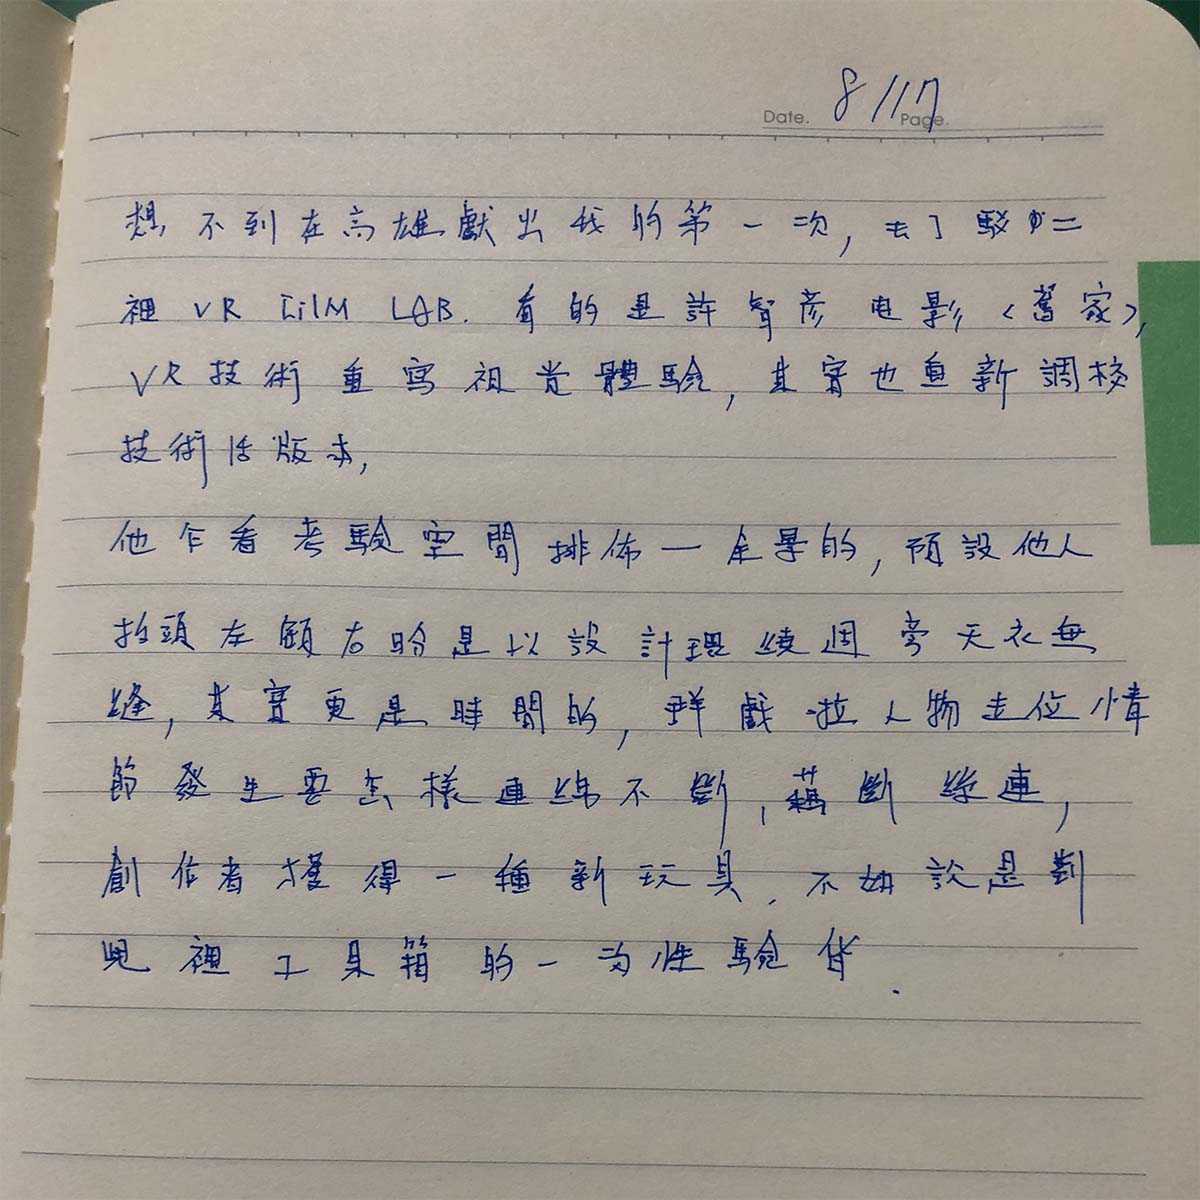 Date. 8/17 Page.
想不到在高雄獻出我的第一次，去了駁二
視 VR FilM LAB. 看的是許智彥电影〈舊家〉，
VR技術重寫視覚體驗，其實也重新調校
技術活版本，
他乍看考驗空間排佈一全景的，預設他人
抬頭左顧右盼是以設計環繞周旁天衣無
縫，其實更是時間的，群戲啦人物走位情
節發生要怎樣連綿不斷，藕斷絲連，
創作者獲得一種新玩具，不如說是對
視工具箱的一次性驗貨.